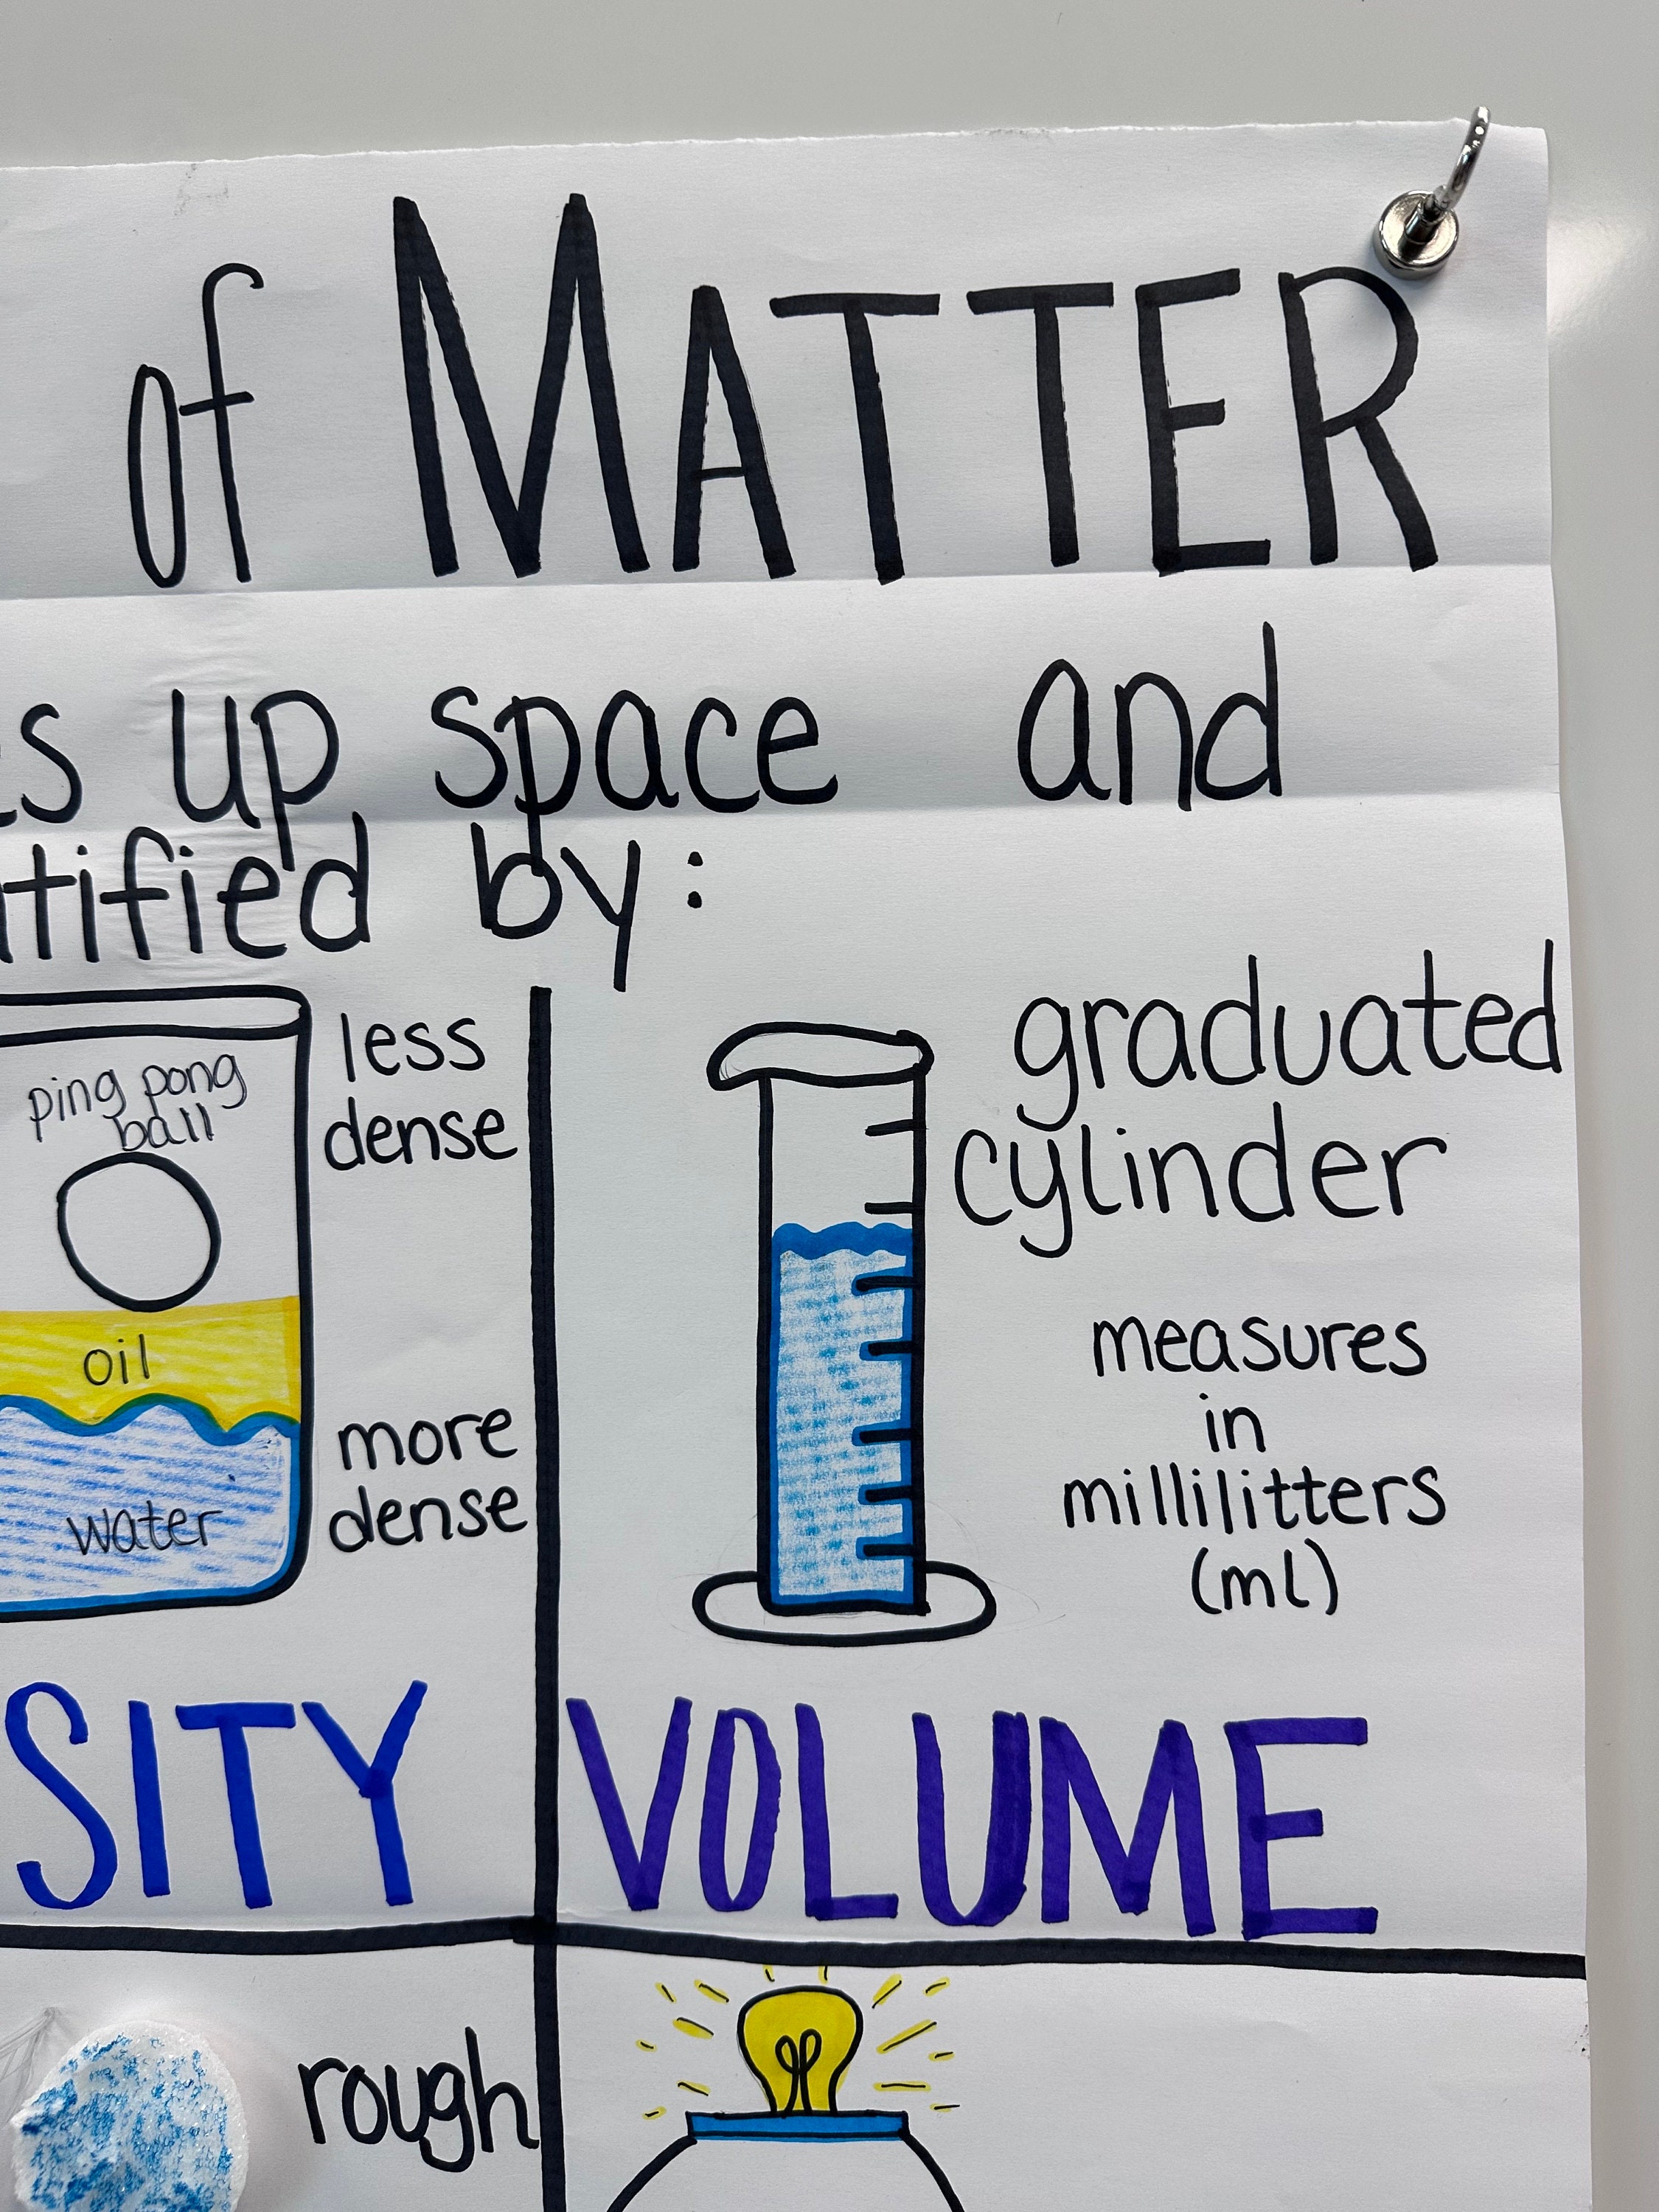 of MATTER
es up space and
tified by:
less
dense
ping pong
ball
oil
more
dense
water
SITY
graduated
cylinder
measures
in
millilitters
(ml)
VOLUME
rough